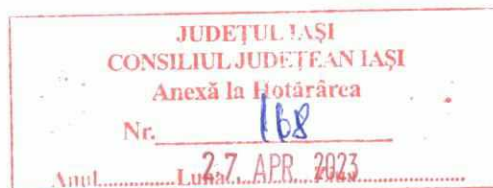 JUDEŢUL IAŞI
CONSILIUL JUDEŢEAN IAŞI
Anexă la Hotărârea
Nr. 168
Anul............Luna 27. APR. 2023